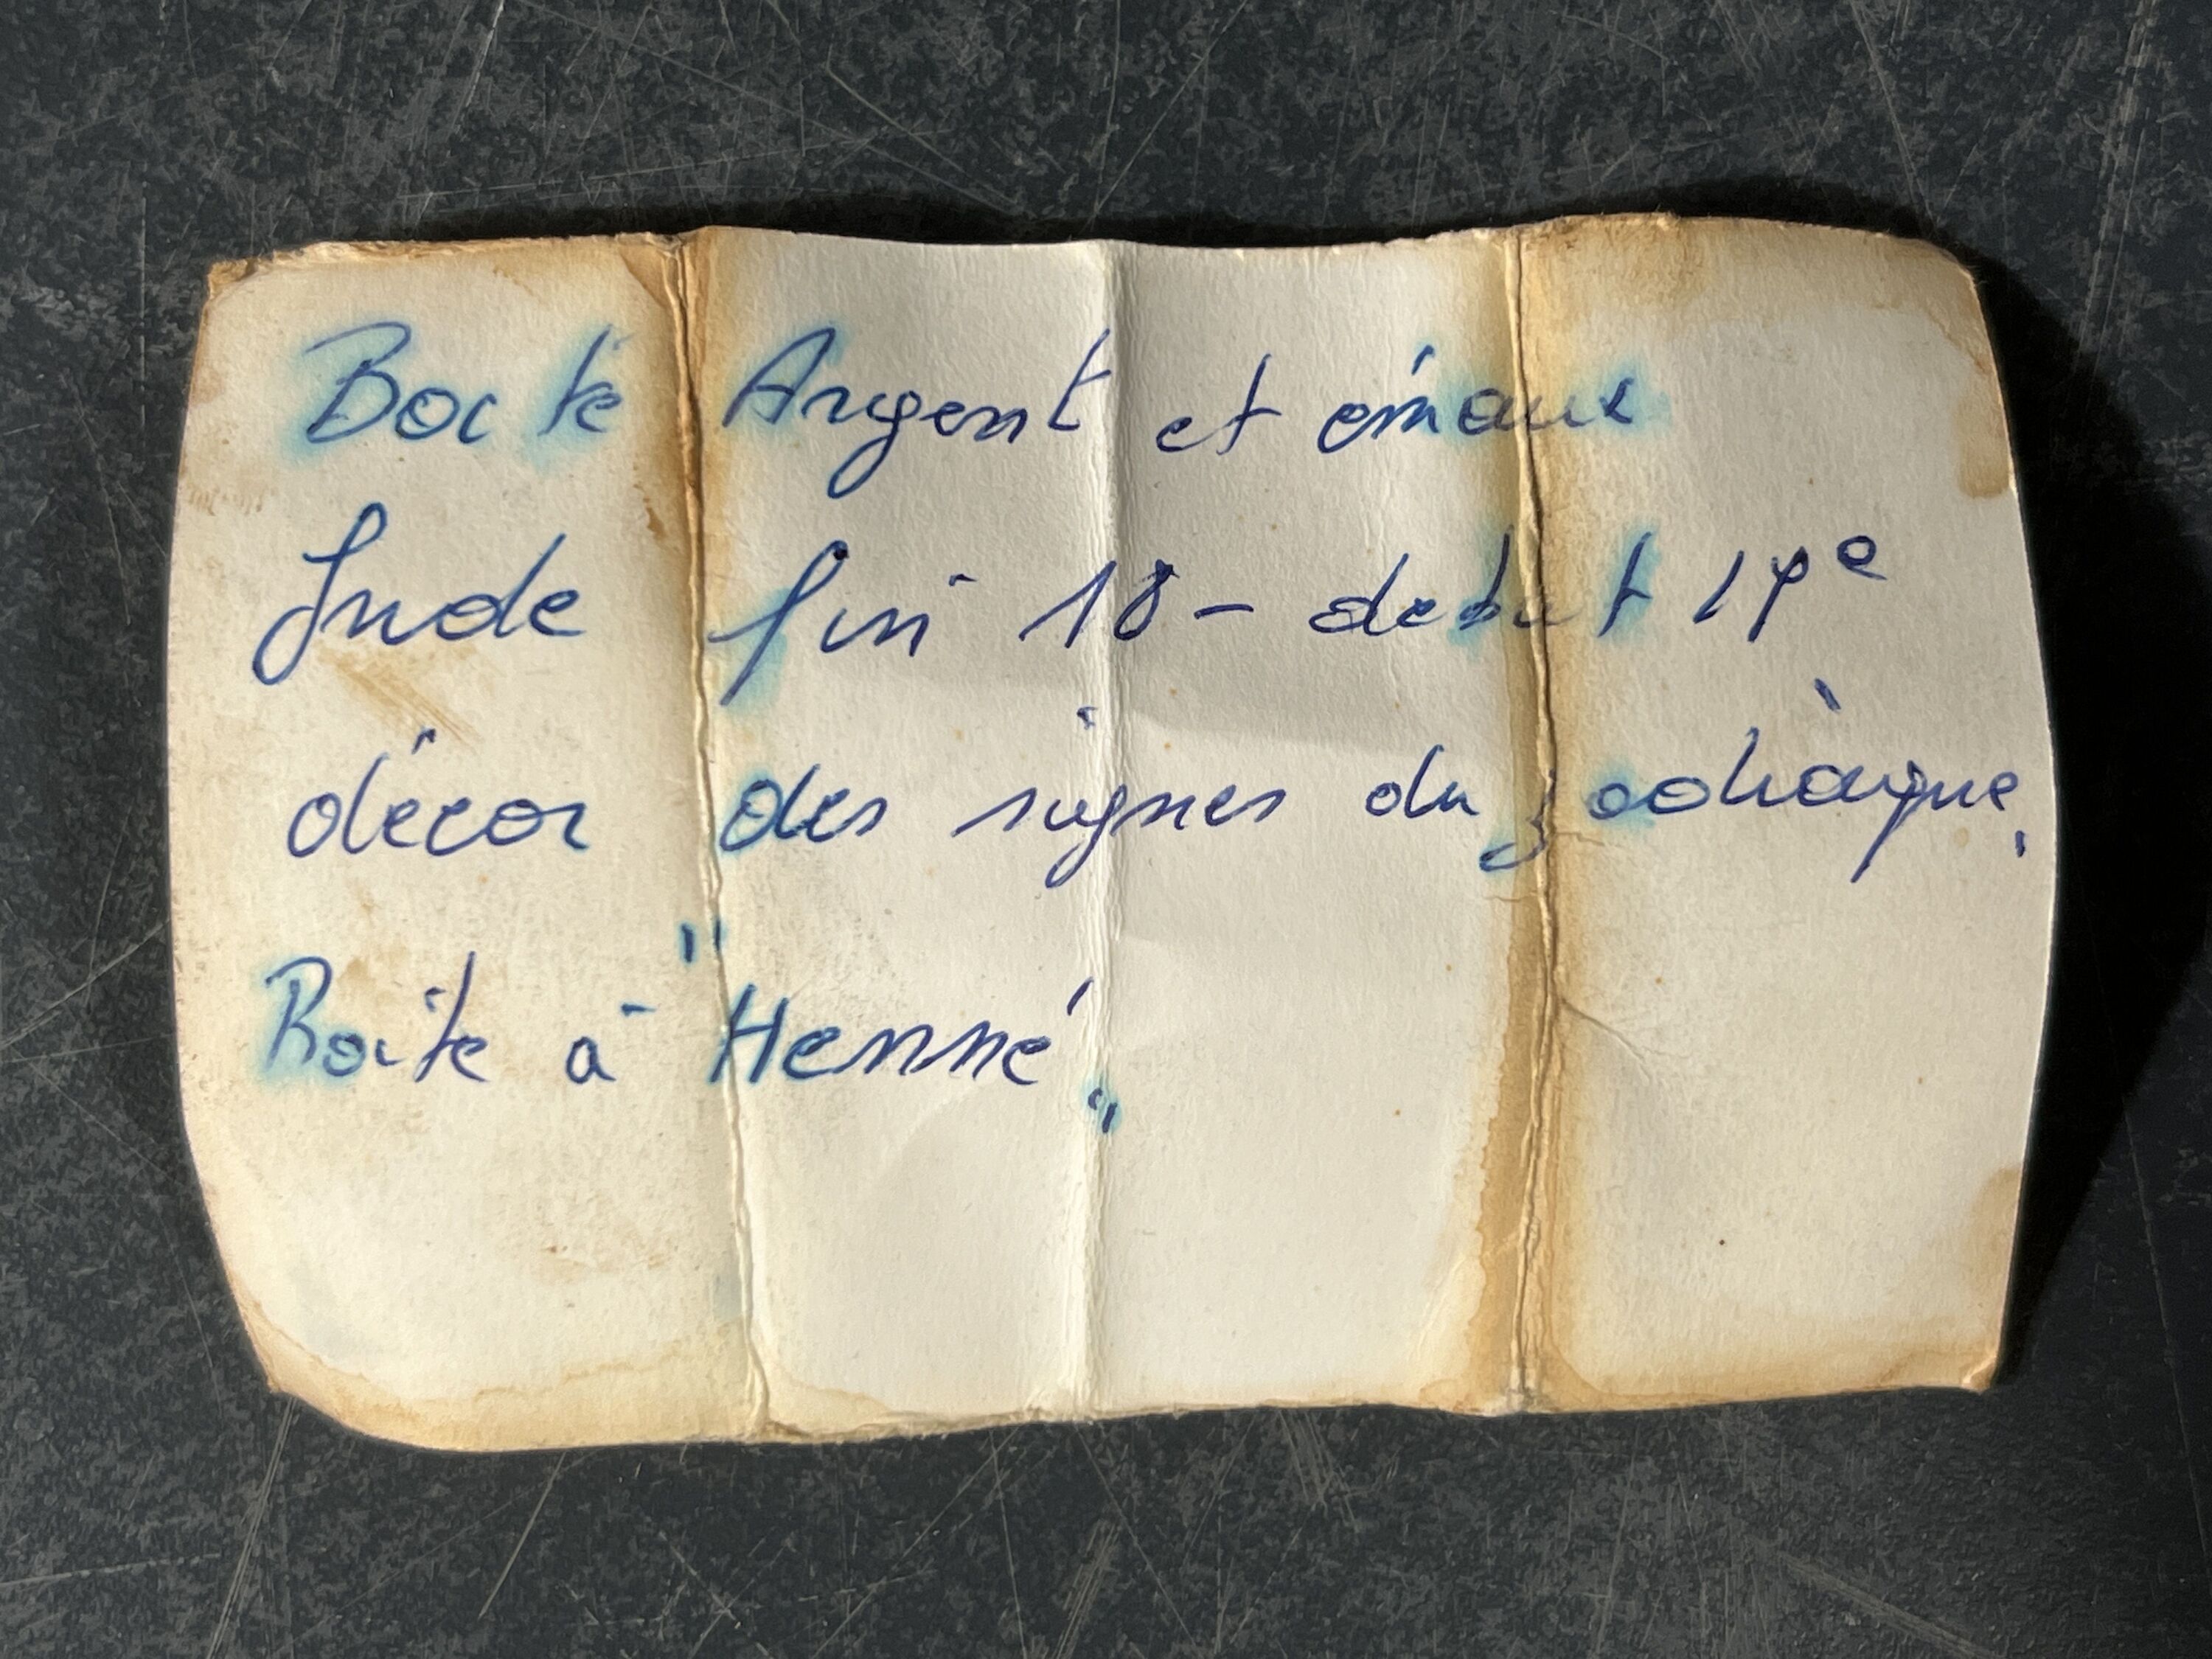 Boite Argent et émaux
Inde fin 18 - debut 19e
décor des signes du zodiaque.
Boite à "Henné"